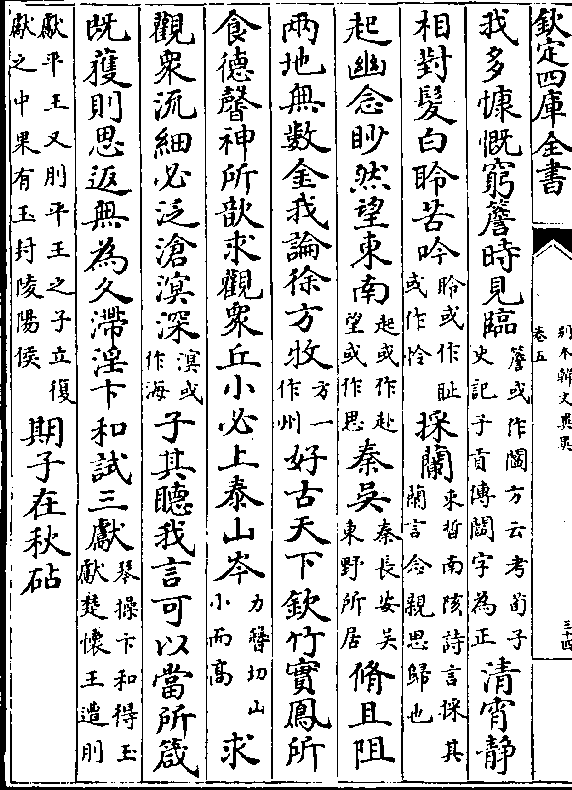 欽定四庫全書
別本韓文考異
卷五
三十四
我多慷慨窮簷時見臨簷或作閻方云考荀子史記子貢傳閻字為正清宵靜
相對髮白聆苦吟聆或作耻或作怜採蘭束晳南陔詩言採其蘭言念親思歸也
起幽念眇然望東南起或作赴望或作思秦吳秦長安吳東野所居脩且阻
兩地無數金我論徐方牧方一作州好古天下欽竹實鳳所
食德馨神所歆求觀衆丘小必上泰山岑力簪切山小而高求
觀衆流細必泛滄溟深溟或作海子其聽我言可以當所箴
既獲則思返無為久滯淫卞和試三獻琴操卞和得玉獻楚懷王遭刖
獻平王又刖平王之子立復獻之中果有玉封陵陽侯期子在秋砧